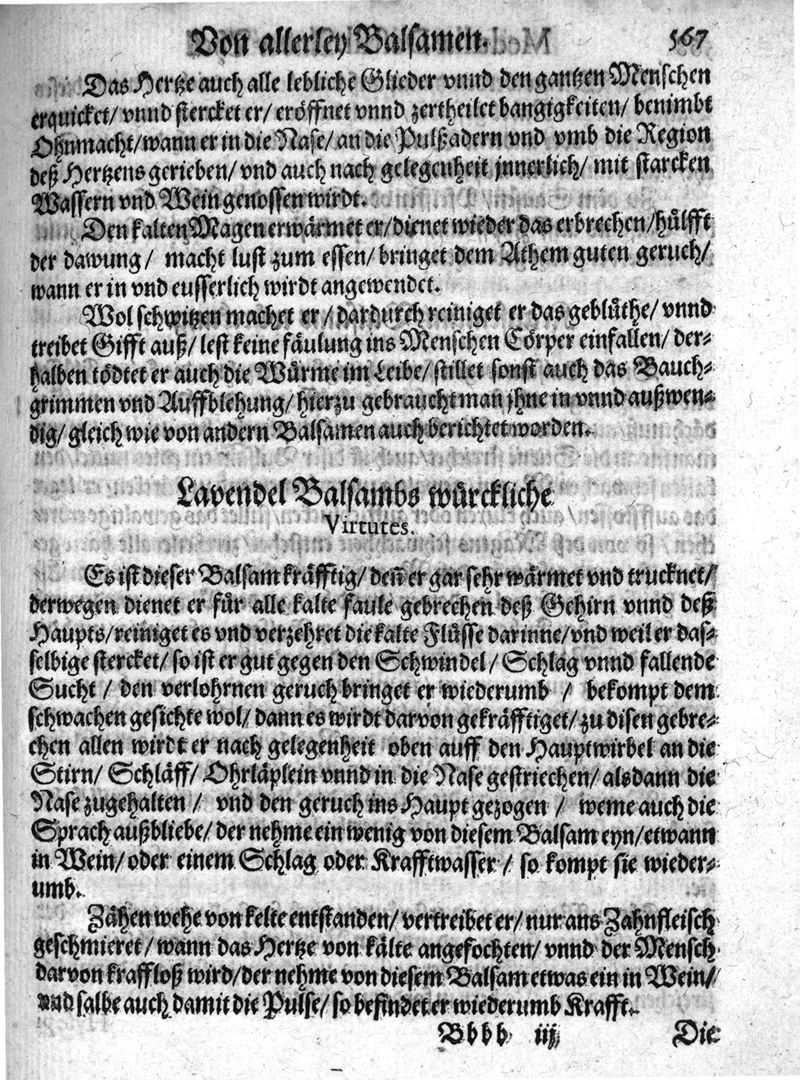 Von allerley Balsamen. 567
Das Hertze auch alle lebliche Glieder vnnd den gantzen Menschen
erquicket/ vnnd stercket er/ eröffnet vnnd zertheilet bangigkeiten/ benimbt
Ohnmacht/ wann er in die Nase/ an die Pulßadern vnd vmb die Region
deß Hertzens gerieben/ vnd auch nach gelegenheit jnnerlich/ mit starcken
Wassern vnd Wein genossen wirdt.
Den kalten Magen erwärmet er/ dienet wieder das erbrechen/ hülfft
der dawung/ macht lust zum essen/ bringet dem Athem guten geruch/
wann er in vnd eusserlich wirdt angewendet.
Wol schwitzen machet er/ dardurch reiniget er das geblüthe/ vnnd
treibet Gifft auß/ lest keine fäulung ins Menschen Cörper einfallen/ der-
halben tödtet er auch die Würme im Leibe/ stillet sonst auch das Bauch-
grimmen vnd Auffblehung/ hierzu gebraucht man jhne in vnnd außwen-
dig/ gleich wie von andern Balsamen auch berichtet worden.
Lavendel Balsambs würckliche
Virtutes.
Es ist dieser Balsam kräfftig/ deñ er gar sehr wärmet vnd trucknet/
derwegen dienet er für alle kalte faule gebrechen deß Gehirn vnnd deß
Haupts/ reiniget es vnd verzehret die kalte Flüsse darinne/ vnd weil er das-
selbige stercket/ so ist er gut gegen den Schwindel/ Schlag vnnd fallende
Sucht/ den verlohrnen geruch bringet er wiederumb/ bekompt dem
schwachen gesichte wol/ dann es wirdt darvon gekräfftiget/ zu disen gebre-
chen allen wirdt er nach gelegenheit oben auff den Hauptwirbel an die
Stirn/ Schläff/ Ohrläplein vnnd in die Nase gestriechen/ als dann die
Nase zugehalten/ vnd den geruch ins Haupt gezogen/ weme auch die
Sprach außbliebe/ der nehme ein wenig von diesem Balsam eyn/ etwann
in Wein/ oder einem Schlag oder Krafftwasser/ so kompt sie wieder-
umb.
Zähen wehe von kelte entstanden/ vertreibet er/ nur ans Zahnfleisch
geschmieret/ wann das Hertze von kälte angefochten/ vnnd der Mensch
darvon kraffloß wird/ der nehme von diesem Balsam etwas ein in Wein/
vnd salbe auch damit die Pulse/ so befindet er wiederumb Krafft.
Bbbb iij Die